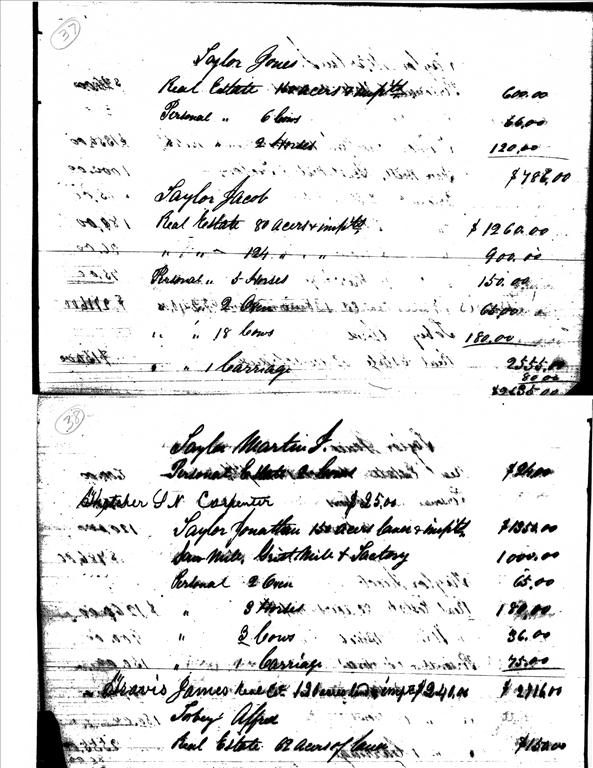 37
Taylor Jones
Real Estate 160 acers & impts 600.00
Personal " 6 Cows 66.00
" " 2 Horses 120.00
$786.00
Taylor Jacob
Real Estate 80 acers & impts $1260.00
" " " 124 " " 900.00
Personal " 5 Horses 150.00
" " 2 Oxen 65.00
" " 18 Cows 180.00
2555.00
" " 1 Carriage 80.00
$2635.00
38
Taylor Martin F.
Personal Estate 2 Cows $24.00
Thatcher S N Carpenter $25.00
Taylor Jonathan 150 acers land & impts $1350.00
Saw Mill, Grist Mill & Factory 1000.00
Personal 2 Oxen 65.00
" 3 Horses 180.00
" 3 Cows 36.00
" 1 Carriage 75.00
Travis James Real Est. 120 acres impts $240.00 $2716.00
Tobey Alfred
Real Estate 62 acers of land $150.00